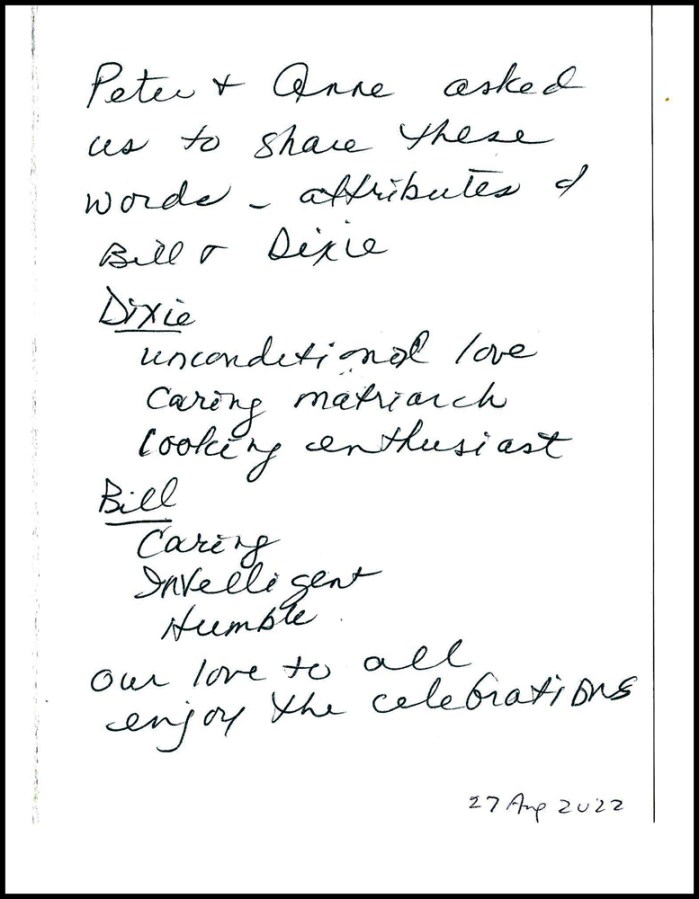 Peter + Anne asked
us to share these
words - attributes of
Bill & Dixie
Dixie
unconditional love
Caring matriarch
Cooking enthusiast
Bill
Caring
Intelligent
Humble
our love to all
enjoy the celebrations
27 Aug 2022